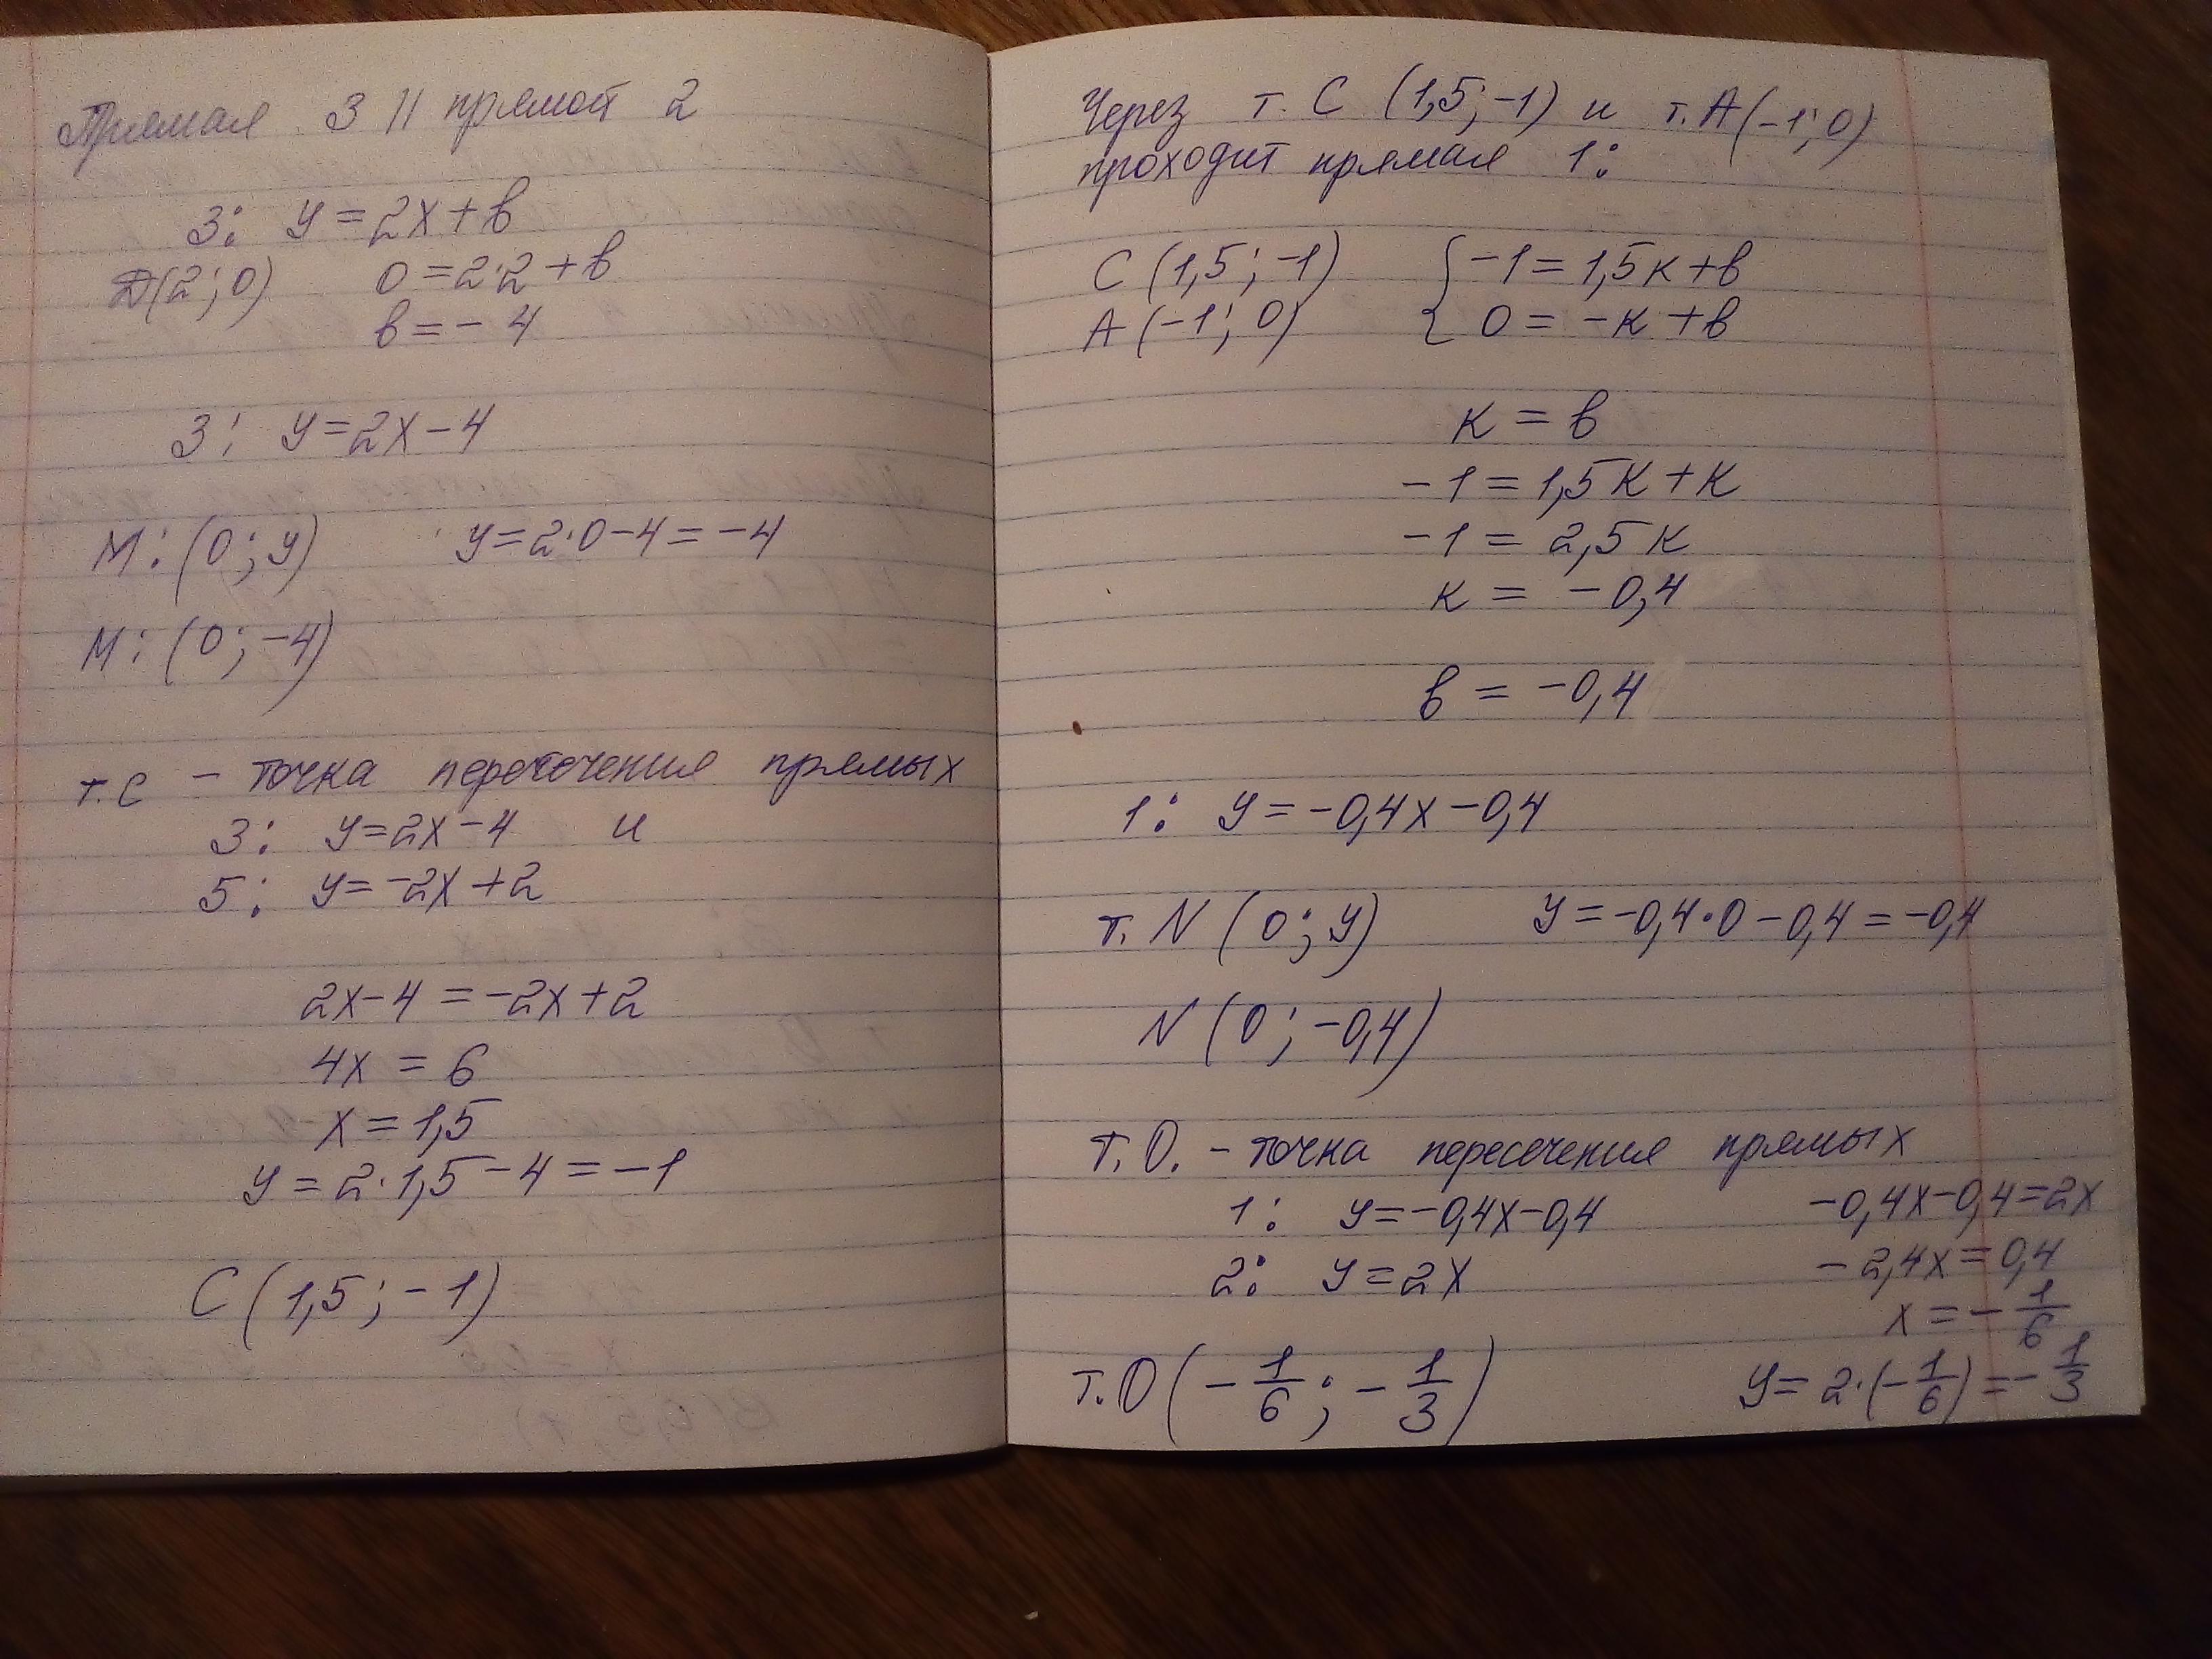 Прямая 3 || прямой 2
3: y = 2x + b
D(2; 0) 0 = 2·2 + b
b = -4
3: y = 2x - 4
M: (0; y) y = 2·0 - 4 = -4
M: (0; -4)
т. C - точка пересечения прямых
3: y = 2x - 4 и
5: y = -2x + 2
2x - 4 = -2x + 2
4x = 6
x = 1,5
y = 2·1,5 - 4 = -1
C (1,5; -1)
Через т. C (1,5; -1) и т. A(-1; 0)
проходит прямая 1:
C (1,5; -1) { -1 = 1,5k + b
A (-1; 0) 0 = -k + b
k = b
-1 = 1,5k + k
-1 = 2,5k
k = -0,4
b = -0,4
1: y = -0,4x - 0,4
т. N (0; y) y = -0,4·0 - 0,4 = -0,4
N (0; -0,4)
т. O. - точка пересечения прямых
1: y = -0,4x - 0,4 -0,4x - 0,4 = 2x
2: y = 2x -2,4x = 0,4
x = -1/6
т. O (-1/6; -1/3) y = 2·(-1/6) = -1/3